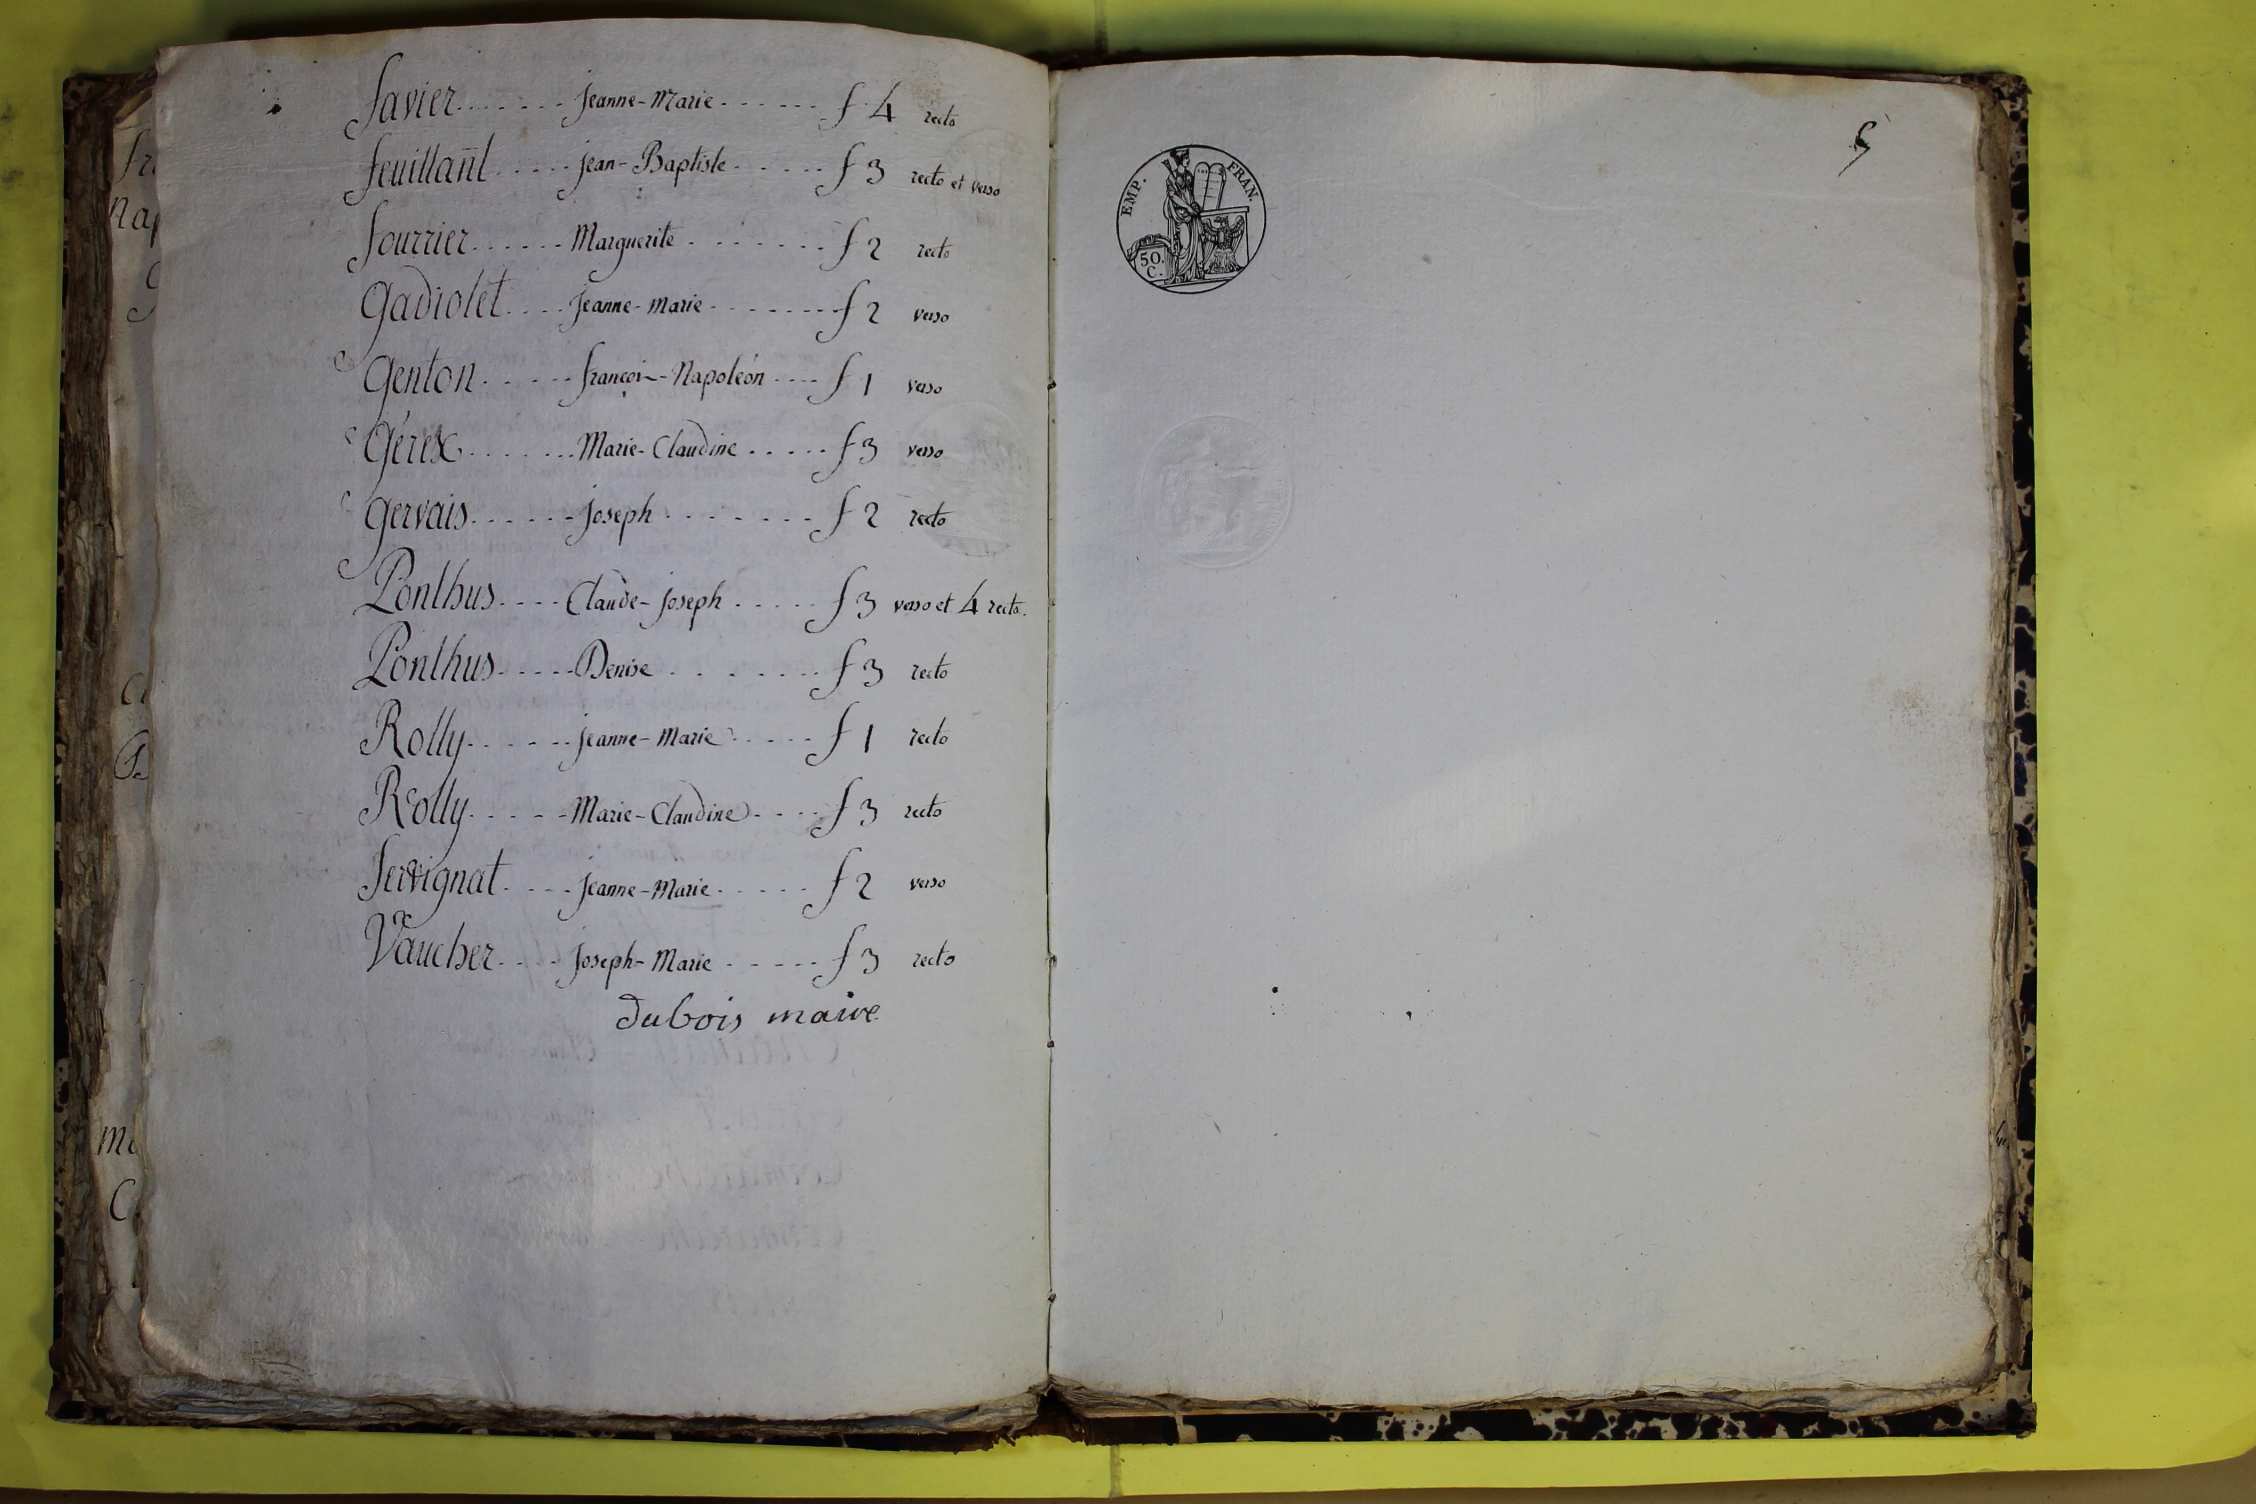 favier....... jeanne-Marie...... f. 4 recto
feuillant..... jean-Baptiste...... f 3 recto et verso
fourrier...... Marguerite........ f 2 recto
Gadiolet.... jeanne-marie........ f 2 verso
Genton...... françois-Napoléon.... f 1 verso
Gérex....... Marie-Claudine..... f 3 verso
Gervais...... joseph........ f 2 recto
Ponthus.... Claude-joseph..... f 3 verso et 4 recto.
Ponthus..... Denise....... f 3 recto
Rolly...... jeanne-Marie..... f 1 recto
Rolly..... Marie-Claudine.... f 3 recto
Servignat.... jeanne-Marie..... f 2 verso
Vaucher.... joseph-Marie..... f 3 recto
dubois maire
5
EMP. FRAN.
50.
C.